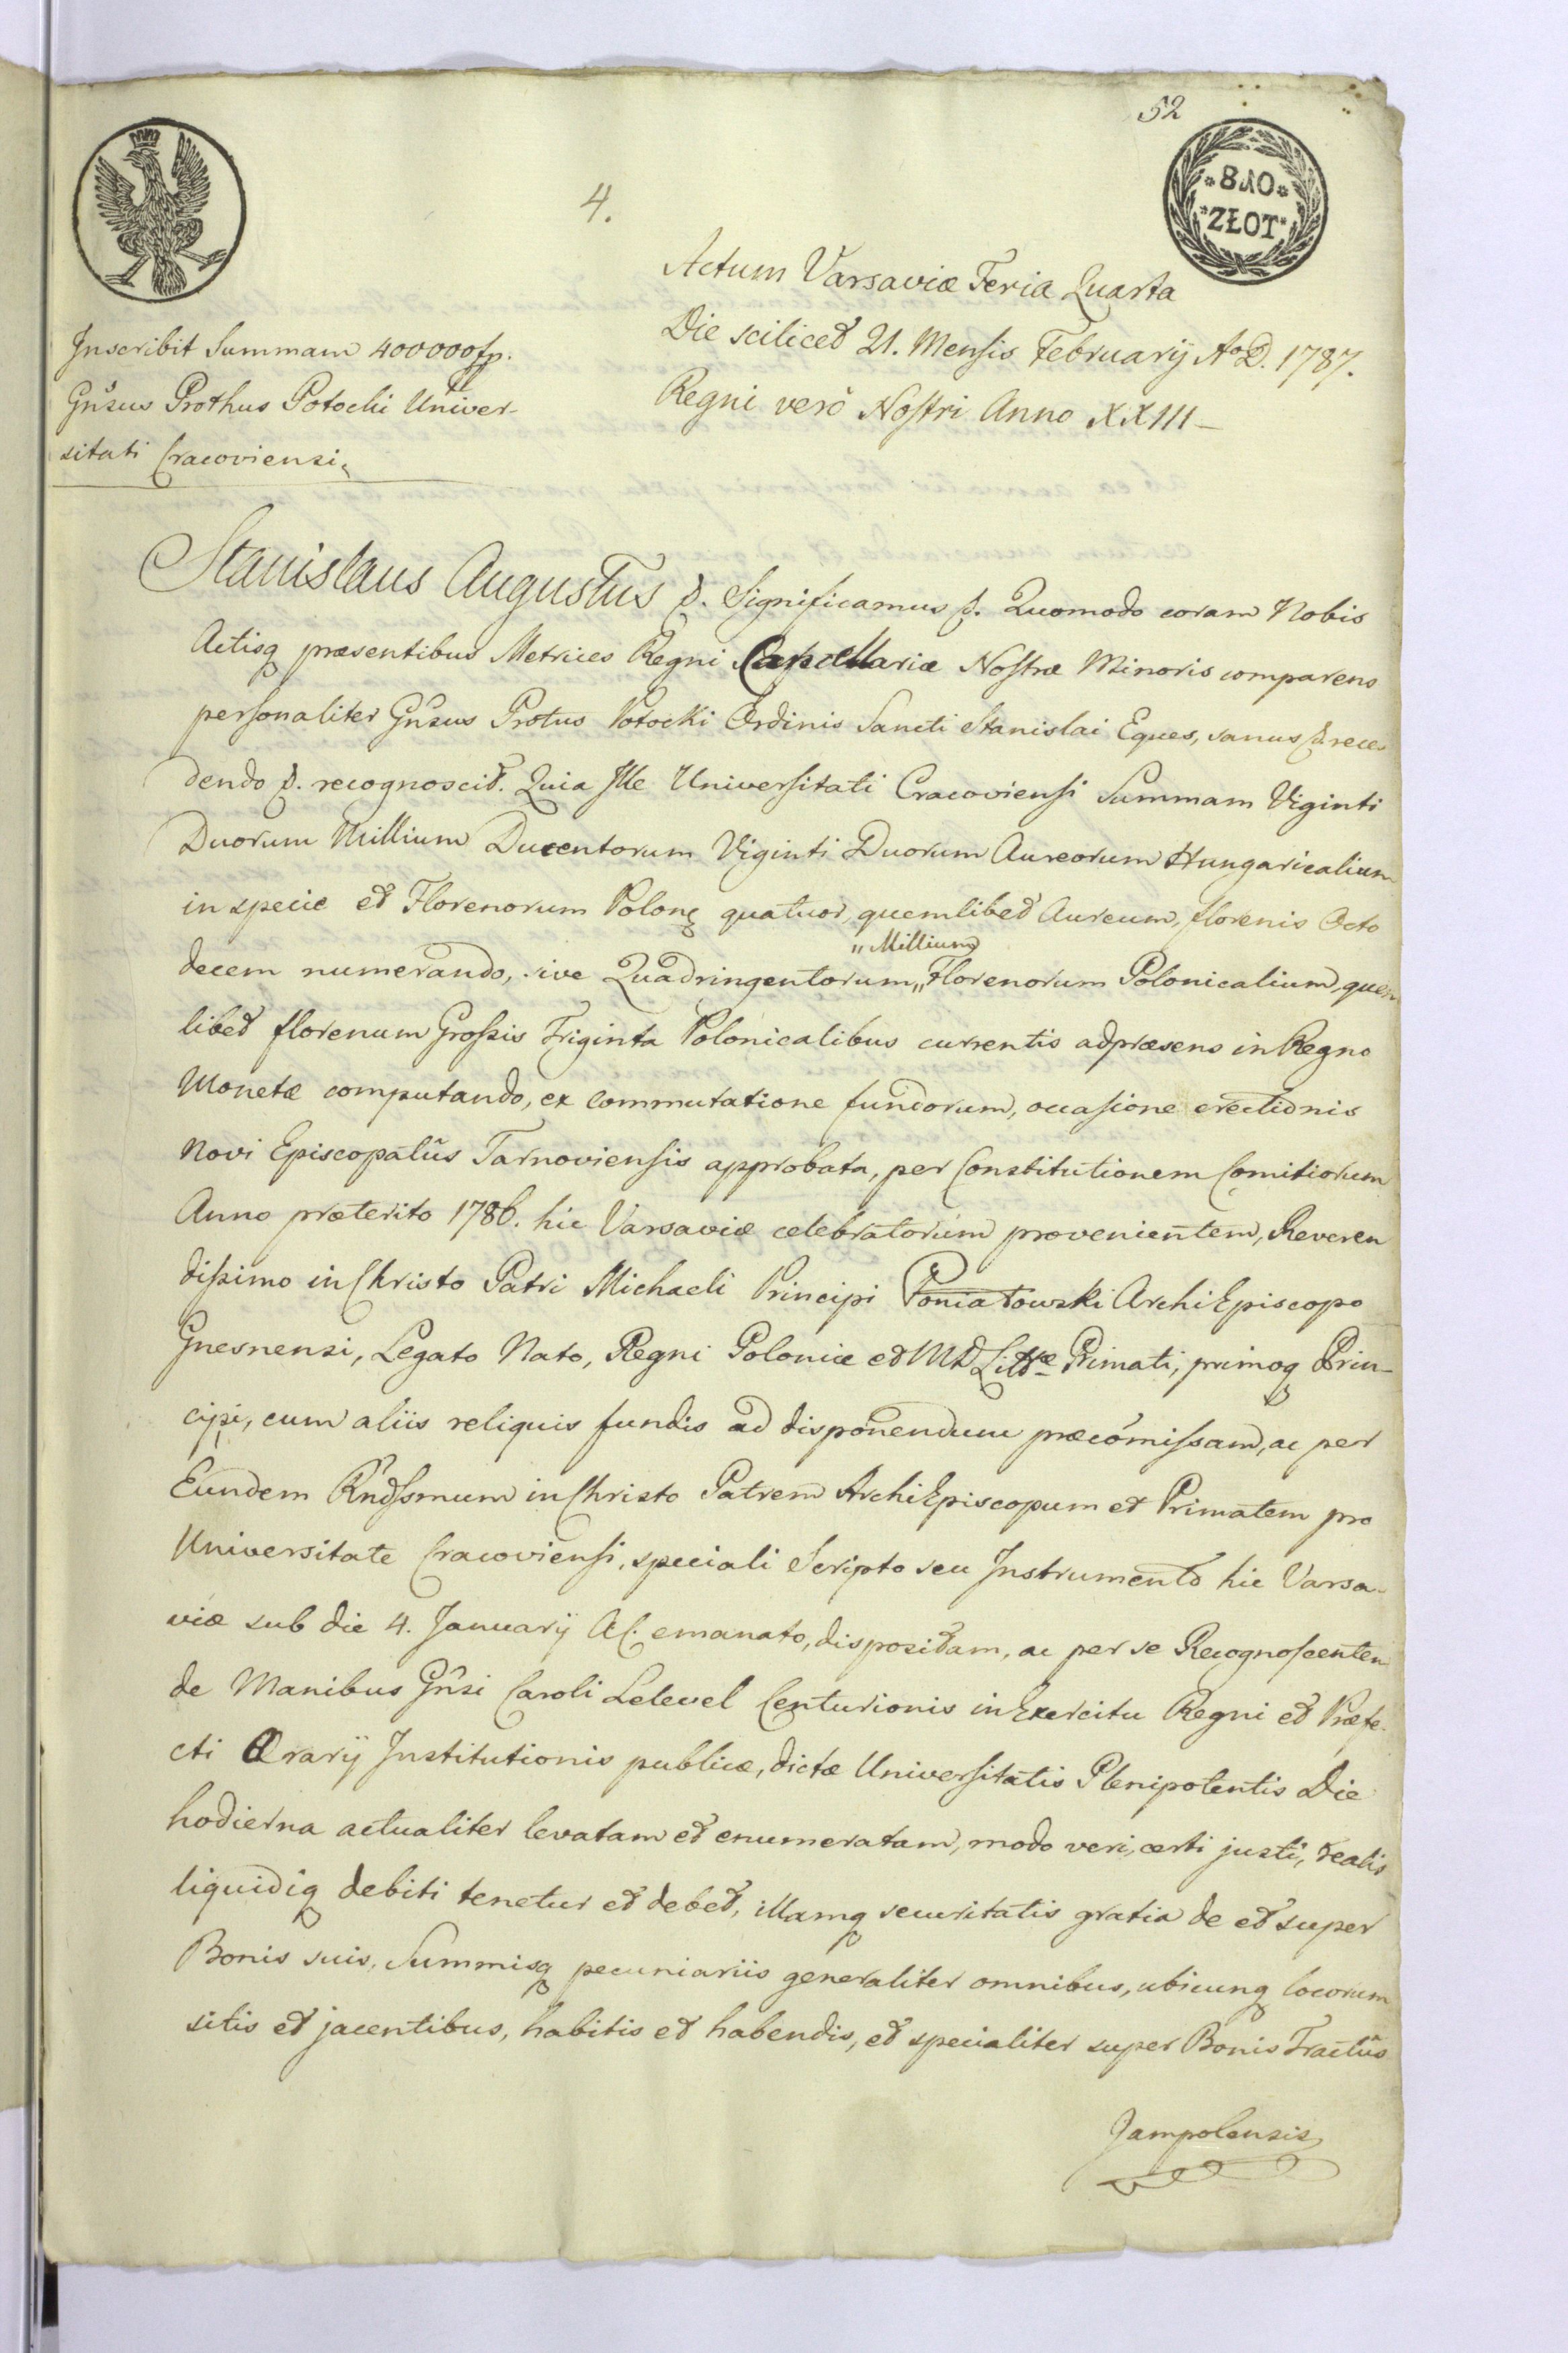 52
* 8 ZŁO *
* ZŁOT *
4.
Actum Varsaviæ Feria Quarta
Die scilicet 21. Mensis Februarÿ AoD. 1787.
Regni verò Nostri Anno XXIII
Inscribit Summam 400000fp.
Gnsus Prothus Potocki Univer-
sitati Cracoviensi.
Stanislaus Augustus &. Significamus &. Quomodo coram Nobis
Actisq præsentibus Metrices Regni Cancellariæ Nostræ Minoris comparens
personaliter Gnsus Protus Potocki Ordinis Sancti Stanislai Eques, sanus &. rece
dendo &. recognoscit. Quia Ille Universitati Cracoviensi Summam Viginti
Duorum Millium Ducentorum Viginti Duorum Aureorum Hungaricalium
in specie et Florenorum Polonę quatuor, quemlibet Aureum, florenis Octo
decem numerando, sive Quadringentorum,, Florenorum Polonicalium, quem
,, Millium
libet florenum Grossis Triginta Polonicalibus currentis adpræsens in Regno
Monetæ computando, ex commutatione fundorum, occasione erectionis
Novi Episcopatûs Tarnoviensis approbata, per Constitutionem Comitiorum
Anno præterito 1786. hic Varsaviæ celebratorum provenientem, Reveren
dissimo in Christo Patri Michaeli Principi Poniatowski ArchiEpiscopo
Gnesnensi, Legato Nato, Regni Poloniæ et MD Littæ Primati, primoq Prin-
cipi, cum aliis reliquis fundis ad disponendum præcomissam, ac per
Eundem Rndssmum in Christo Patrem ArchiEpiscopum et Primatem pro
Universitate Cracoviensi, speciali Scripto seu Instrumento hic Varsa-
viæ sub die 4. Januarÿ AC. emanato, dispositam, ac per se Recognoscentem
de Manibus Gnsi Caroli Lelevel Centurionis in Exercitu Regni et Præfe-
cti Ærarÿ Institutionis publicæ, dictæ Universitatis Plenipotentis Die
hodierna actualiter levatam et enumeratam, modo veri, certi justi, realis
liquidiq debiti tenetur et debet, illamq securitatis gratia de et super
Bonis suis, Summisq pecuniariis generaliter omnibus, ubicunq locorum
sitis et jacentibus, habitis et habendis, et specialiter super Bonis Tractûs
Jampolensis